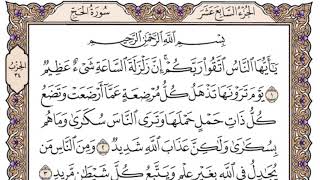 الجزء السابع عشر
سورة الحج
بِسْمِ اللَّهِ الرَّحْمَٰنِ الرَّحِيمِ
يَٰٓأَيُّهَا النَّاسُ اتَّقُوا رَبَّكُمْ ۚ إِنَّ زَلْزَلَةَ السَّاعَةِ شَىْءٌ عَظِيمٌ
١ يَوْمَ تَرَوْنَهَا تَذْهَلُ كُلُّ مُرْضِعَةٍ عَمَّآ أَرْضَعَتْ وَتَضَعُ
كُلُّ ذَاتِ حَمْلٍ حَمْلَهَا وَتَرَى النَّاسَ سُكَٰرَىٰ وَمَا هُم
بِسُكَٰرَىٰ وَلَٰكِنَّ عَذَابَ اللَّهِ شَدِيدٌ ٢ وَمِنَ النَّاسِ مَن
يُجَٰدِلُ فِى اللَّهِ بِغَيْرِ عِلْمٍ وَيَتَّبِعُ كُلَّ شَيْطَٰنٍ مَّرِيدٍ ٣
الحزب
٣٤